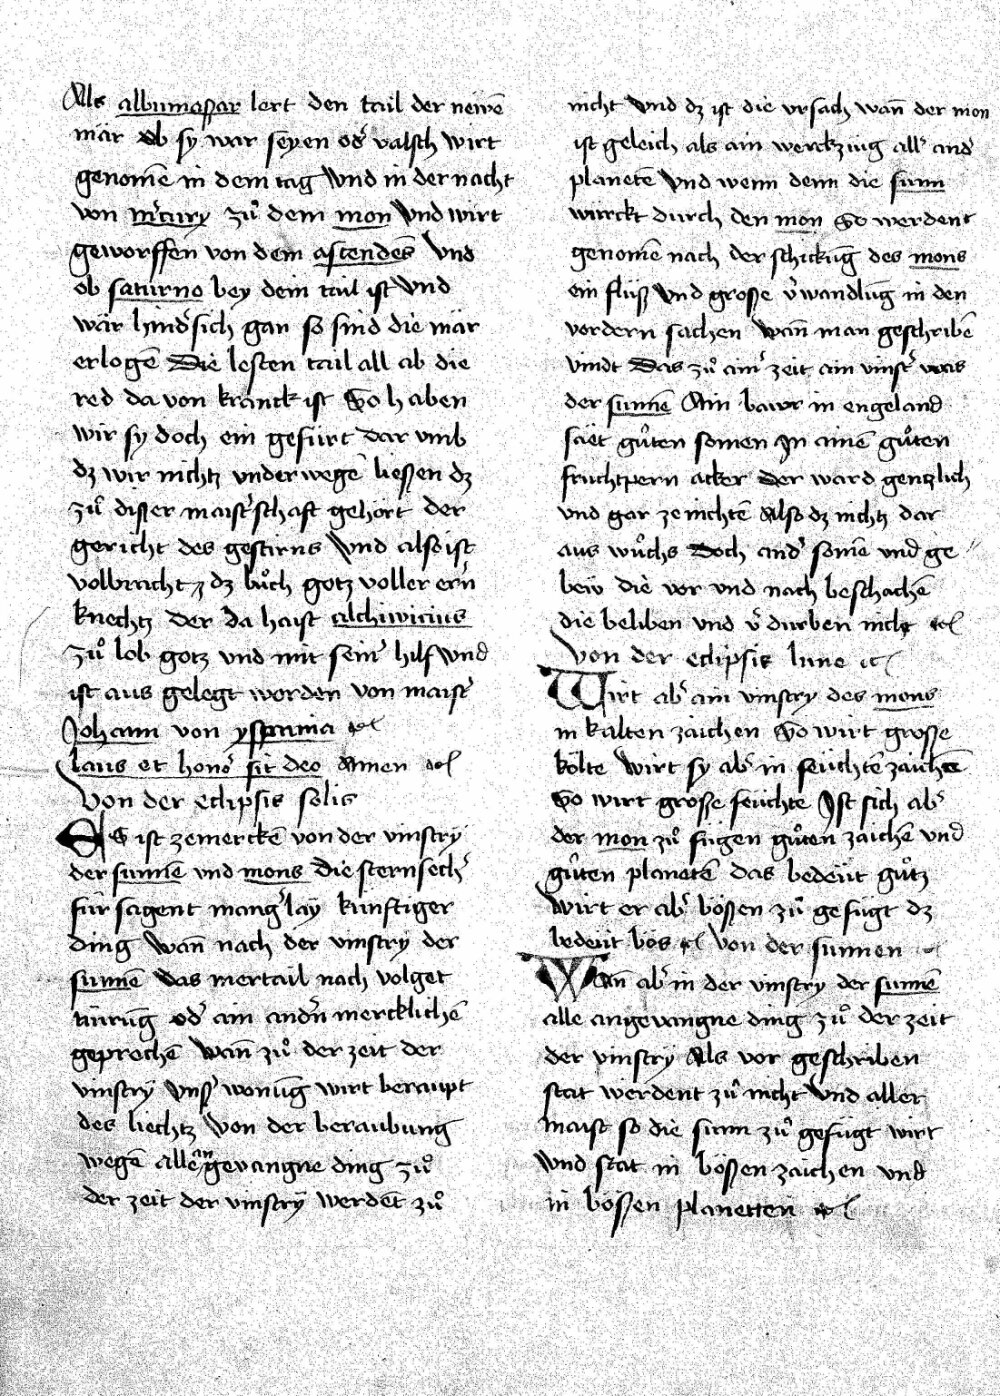 Als albumasar lert den tail der newē
mär ob sy war seyen od͛ valsch wirt
genomē in dem tag Vnd in der nacht
von m͛cury zů dem mon Vnd wirt
geworffen von dem ascendēs Vnd
ob saturno bey dem tail ist Vnd
wär hind͛sich gan so sind die mär
erlogē Die lesten tail all ab die
red da von kranck ist So haben
wir sy doch ein gefürt dar vmb
dz wir nichtz vnderwegē liessen dz
zů disser maist͛schaft gehört der
gericht des gestirns Vnd also ist
volbracht dz bůch gotz voller ern̄
knechtz der da haist alchiwicius
zů lob gotz vnd mit sein͛ hilf vnd
ist aus gelegt worden von maist͛
Johann von yspania
laus et hono͛ sit deo Amen
Von der eclipsis solis
ES ist zemerckē von der vinstrÿ
der sunnē vnd mons Die sternsech͛
für sagent mang͛laÿ künftiger
ding Wan̄ nach der vinstrÿ der
sunnē das mertail nach volget
änrūg od͛ ain and͛n mercklichē
geprechē Wan̄ zů der zeit der
vinstrÿ Vns͛ wonūg wirt beraupt
des liechtz Von der beraubung
wegē allē angevangne ding zů
der zeit der vinstrÿ werdēt zů
nicht Vnd dz ist die vrsach wan̄ der mon
ist geleich als ain werckzüg all͛ and͛
planetē Vnd wenn denn die sunn
würckt durch den mon So werdent
genomē nach der schickūg des mons
ein flüß Vnd grosse v͛wandlūg in den
vordern sachen Wan̄ man geschribē
vindt Das zů aim͛ zeit ain vinst͛ was
der sunnē Ain bawr in engeland
säet gůten somen Jn ainē gůten
fruchtpern acker Der ward gentzlich
vnd gar ze nichtē Also dz nichtz dar
aus wůchs Doch and͛ somē vnd ge
bew die vor vnd nach beschachē
die beliben vnd v͛durben nicht
Von der eclipsis lune
Wirt ab͛ ain vinstry des mons
in kalten zaichen So wirt grosse
költe Wirt sy ab͛ in feüchtē zaichē
So wirt grosse feüchte Jst sich ab͛
der mon zů fügen gůten zaichē vnd
gůten planetē Das bedeüt gůtz
Wirt er ab͛ bössen zů gefügt dz
bedeüt bös Von der sunnen
Wan̄ ab͛ in der vinstry der sunnē
alle angevangne ding zů der zeit
der vinstrÿ Als vor geschriben
stat werdent zů nicht Vnd aller
maist so die sunn zů gefügt wirt
vnd stat in bössen zaichen vnd
in bössen planetten